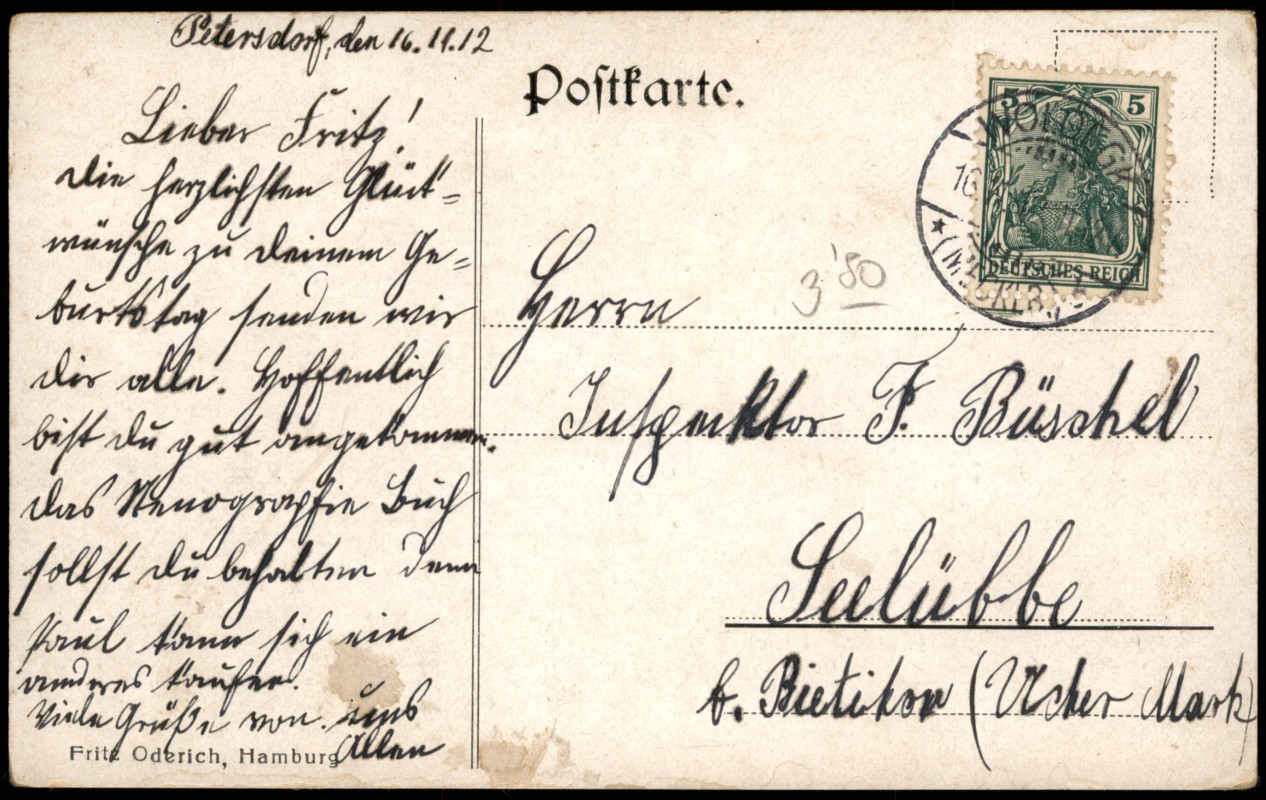 Petersdorf, den 16.11.12
Lieber Fritz!
Die herzlichsten Glück-
wünsche zu deinem Ge-
burtstag senden wir
dir alle. Hoffentlich
bist du gut angekommen.
Das Stenographie Buch
sollst du behalten denn
Paul kann sich ein
anderes kaufen.
Viele Grüße von uns
Allen
Fritz Oderich, Hamburg
Postkarte.
5 5
DEUTSCHES REICH
WOLDEGK
16
(MECKLB)
3'80
Herrn
Inspektor F. Büschel
Seelübbe
b. Bietikow (Ucker Mark)